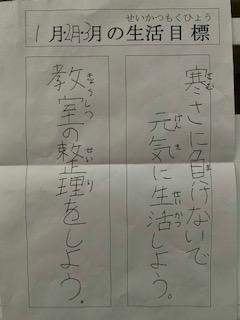 せいかつもくひょう
1月・2月・3月の生活目標
さむ
寒さに負けないで
げんき せいかつ
元気に生活しよう。
きょうしつ せいり
教室の整理をしよう。